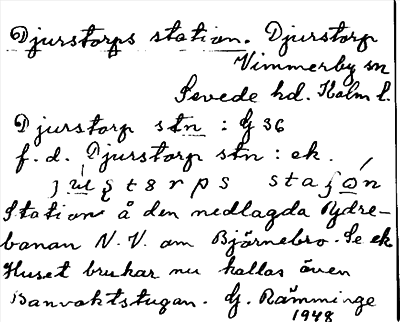 Djurstorps station. Djurstorp
Vimmerby sn
Sevede hd. Kalm l.
Djurstorp stn : G 36
f. d. Djurstorp stn : ek.
station å den nedlagda Ydre-
banan N. V. om Björnebro. Se ek
Huset brukar nu kallas även
Banvaktstugan. G. Rämminge
1948